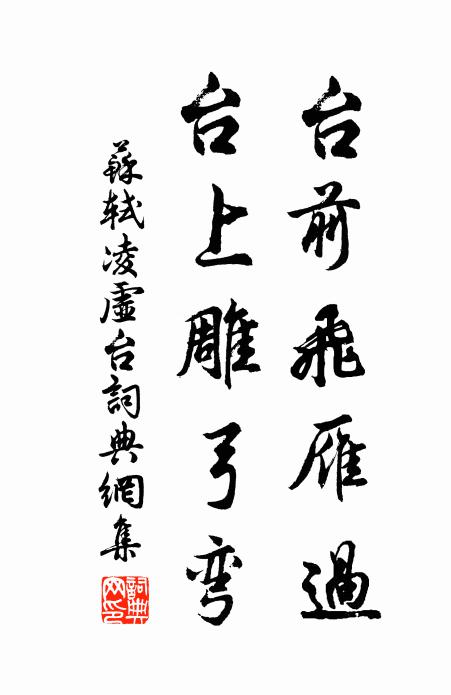 台前飛雁過
台上雕弓弯
蘇軾凌虛台詞典網集
詞典網印